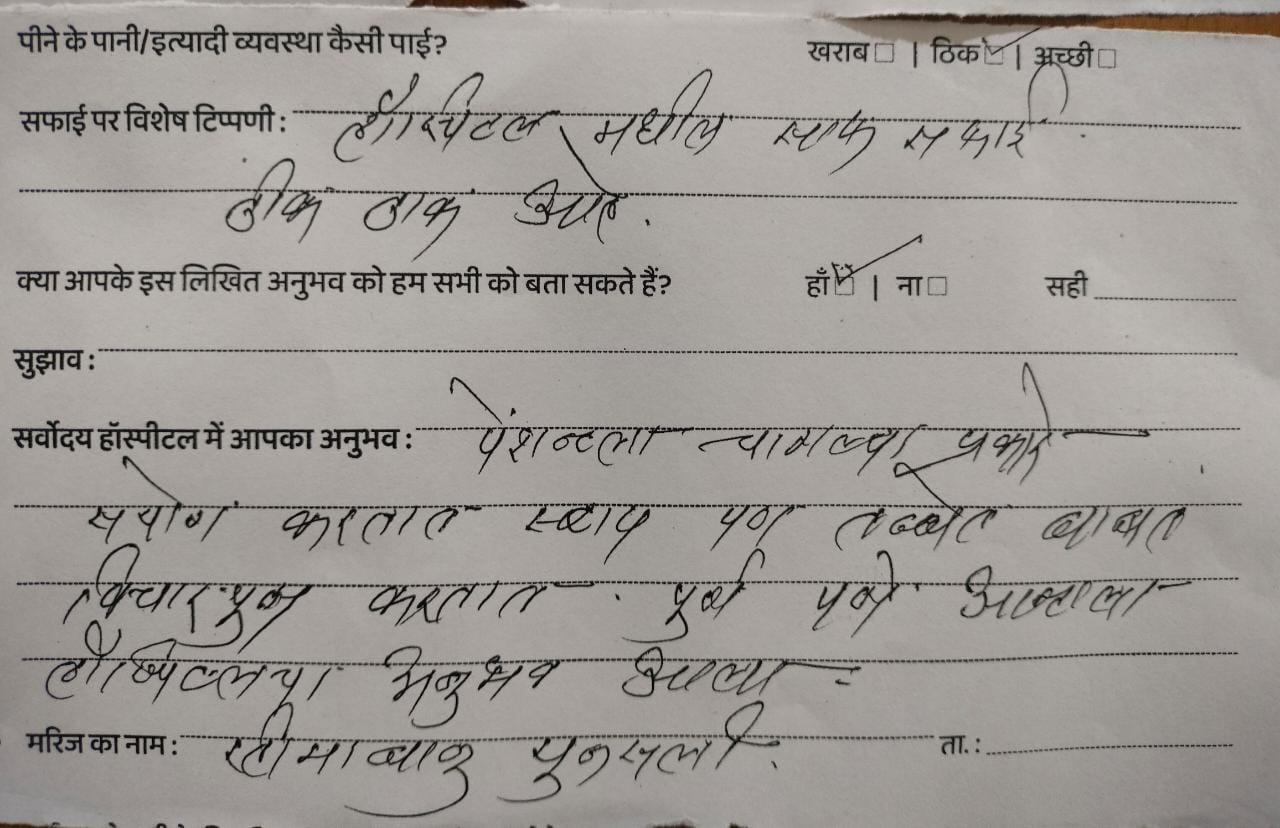 पीने के पानी/इत्यादी व्यवस्था कैसी पाई? खराब□ | ठिक☑ | अच्छी□
सफाई पर विशेष टिप्पणी : हॉस्पिटल मधील साफ सफाई
ठीक ठाक आहे.
क्या आपके इस लिखित अनुभव को हम सभी को बता सकते हैं? हाँ☑ | ना□ सही
सुझाव :
सर्वोदय हॉस्पीटल में आपका अनुभव : पेंशन्टला चांगल्या प्रकारे
सयोग करतात स्टाप पण तब्बेत बाबत
विचारपुस करतात. पुर्ण पणे आम्हाला
हॉस्पिटलचा अनुभव आला
मरिज का नाम :
ता.: